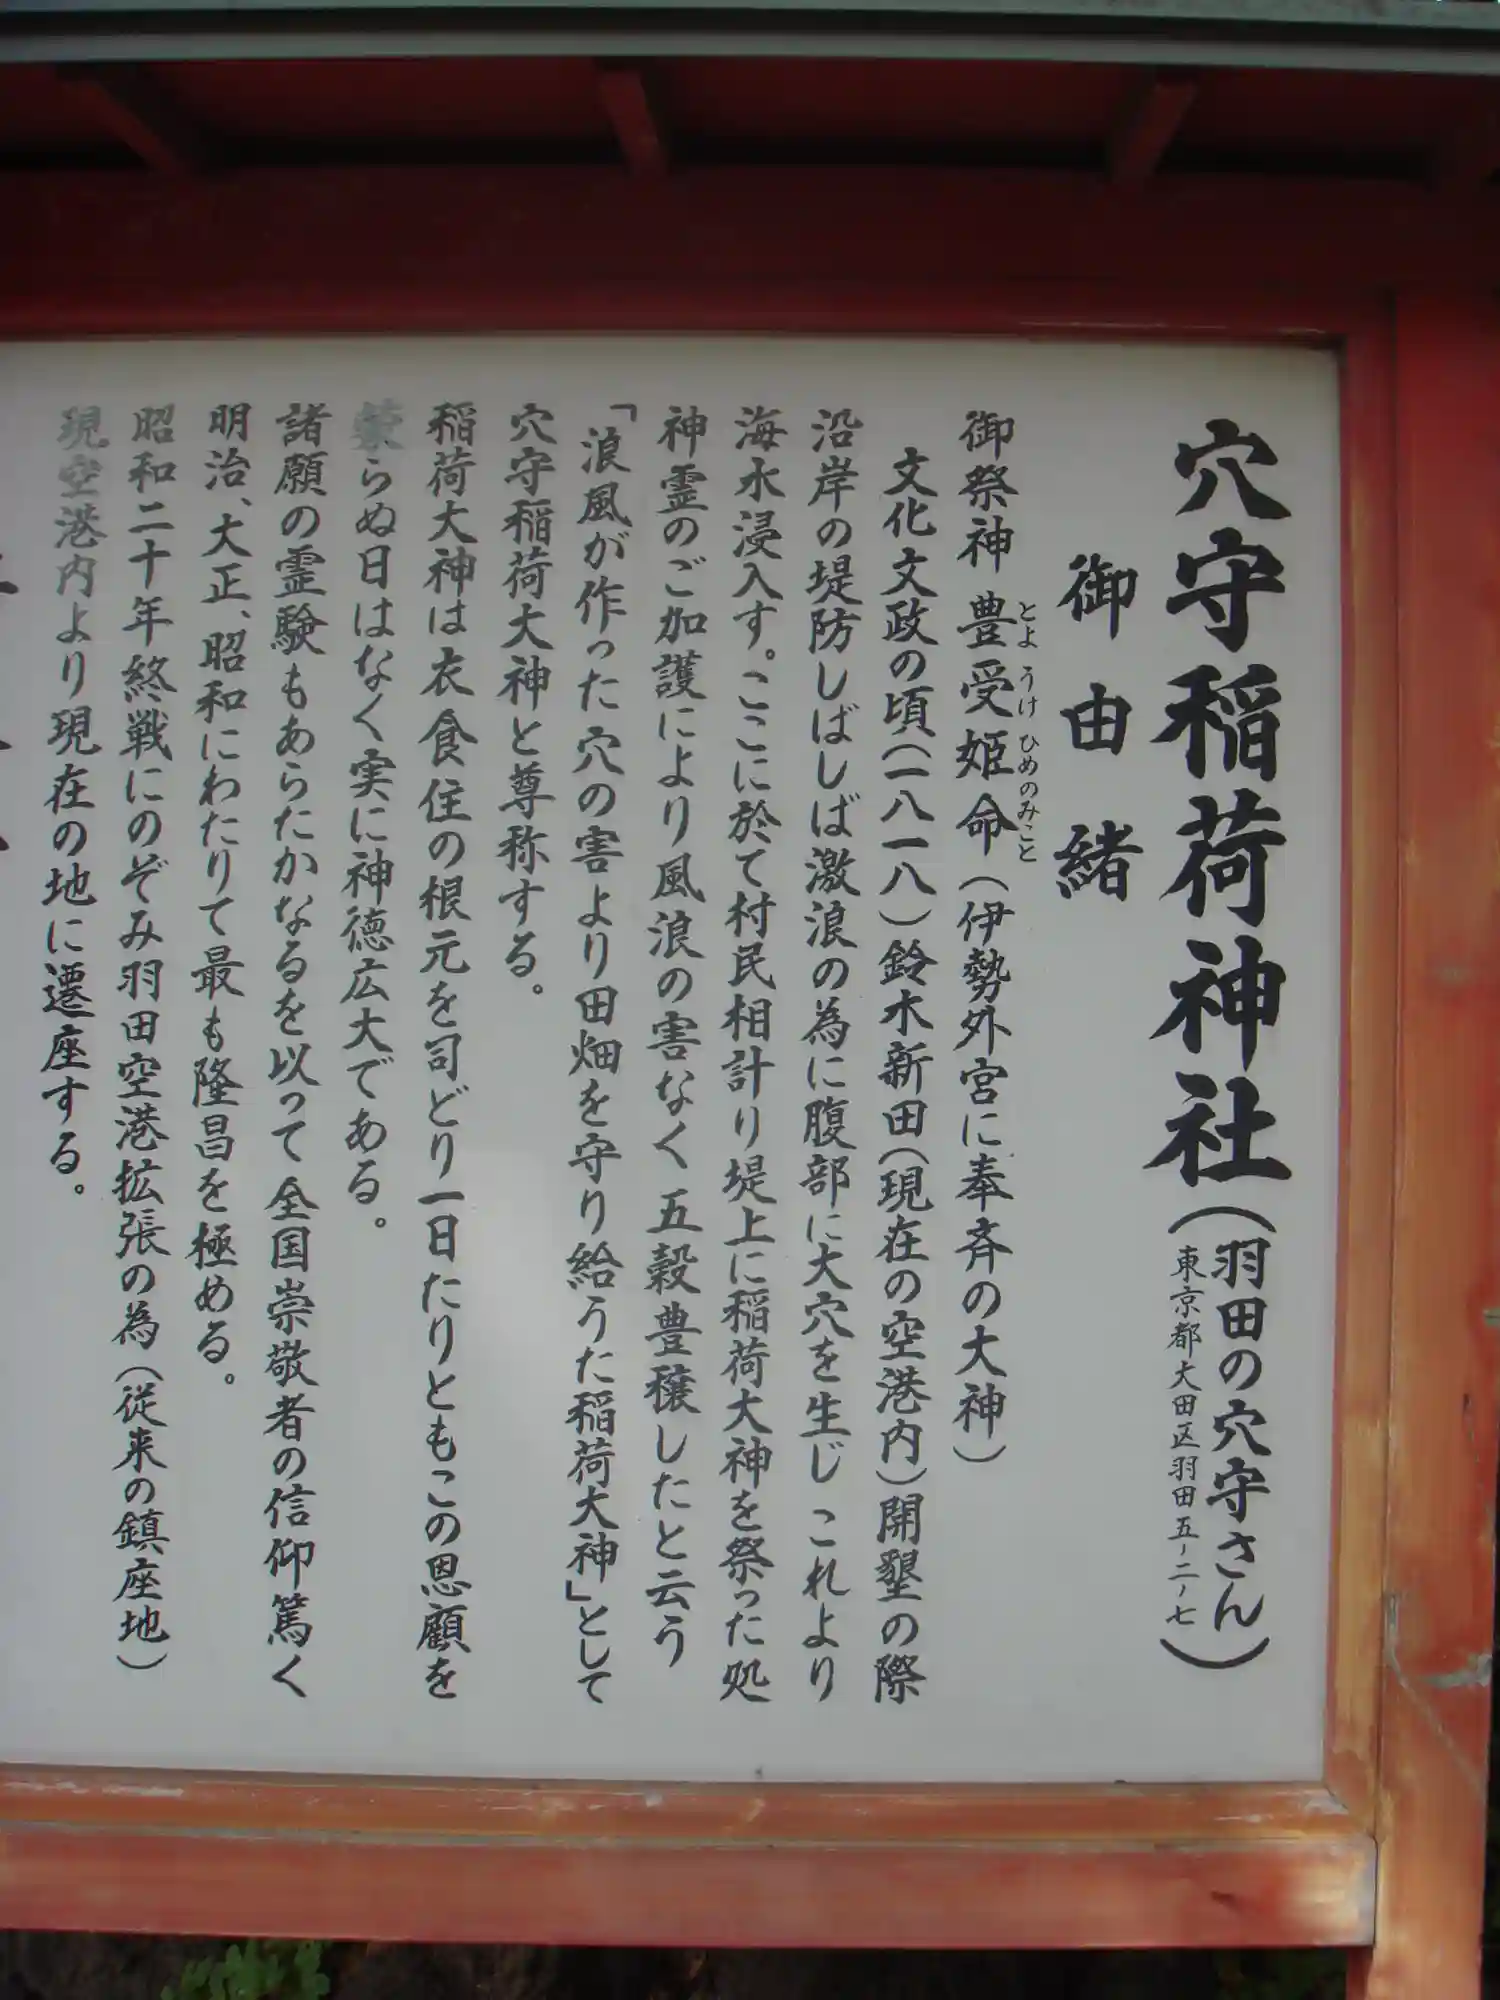 穴守稲荷神社(羽田の穴守さん)
東京都大田区羽田五ー二ー七
御由緒
御祭神 豊受姫命(伊勢外宮に奉斉の大神)
とようけひめのみこと
文化文政の頃(一八一八)鈴木新田(現在の空港内)開墾の際
沿岸の堤防しばしば激浪の為に腹部に大穴を生じ これより
海水浸入す。ここに於て村民相計り堤上に稲荷大神を祭った処
神霊のご加護により風浪の害なく 五穀豊穣したと云う
「浪風が作った穴の害より田畑を守り給うた稲荷大神」として
穴守稲荷大神と尊称する。
稲荷大神は衣食住の根元を司どり一日たりともこの恩顧を
蒙らぬ日はなく実に神徳広大である。
諸願の霊験もあらたかなるを以って全国崇敬者の信仰篤く
明治、大正、昭和にわたりて最も隆昌を極める。
昭和二十年終戦にのぞみ羽田空港拡張の為(従来の鎮座地)
現空港内より現在の地に遷座する。